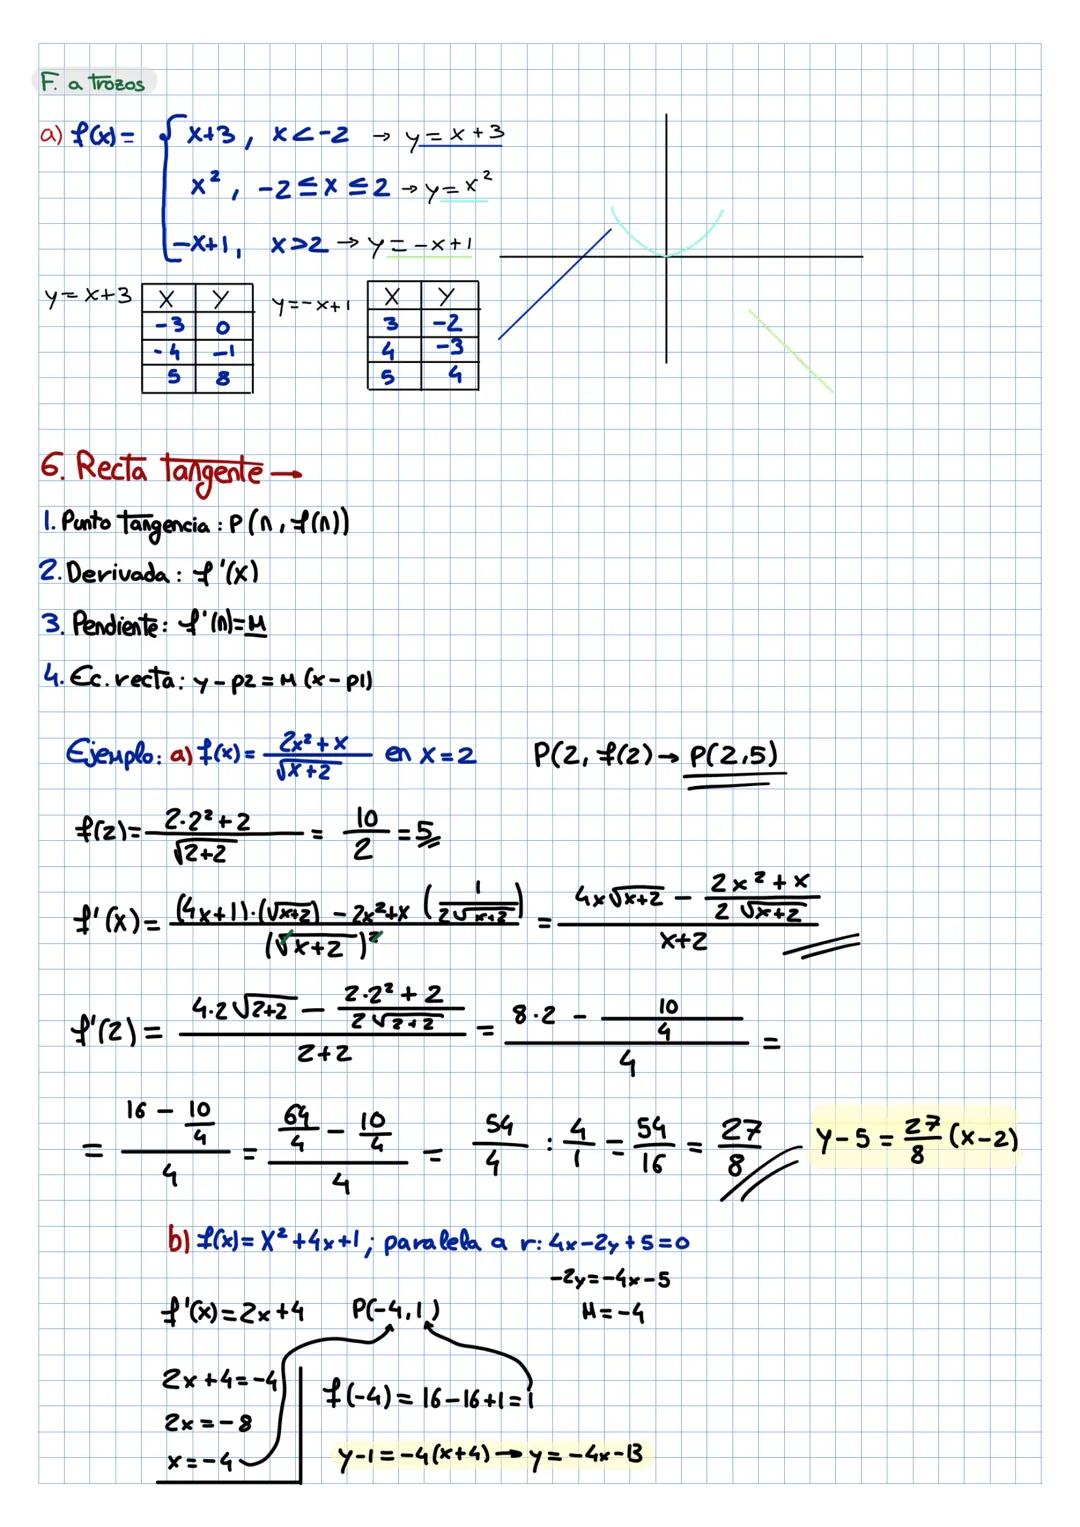 F. a trozos
a) f(x) = { x+3, x<-2 → y = x+3
x², -2≤x≤2 → y = x²
-x+1, x>2 → y = -x+1
y = x+3
X Y
-3 0
-4 -1
5 8
y = -x+1
X Y
3 -2
4 -3
5 4
6. Recta tangente →
1. Punto tangencia : P (n, f(n))
2. Derivada : f'(x)
3. Pendiente : f'(n)=M
4. Ec. recta : y - p2 = M (x - p1)
Ejemplo: a) f(x) = (2x²+x)/(√x+2) en x=2 P(2, f(2) → P(2,5)
f(2) = (2·2²+2)/(√2+2) = 10/2 = 5
f'(x) = ((4x+1)·(√x+2) - 2x²+x (1/(2√x+2)))/(√x+2)² = (4x√x+2 - (2x²+x)/(2√x+2))/(x+2)
f'(2) = (4·2√2+2 - (2·2²+2)/(2√2+2))/(2+2) = (8·2 - 10/4)/4 =
= (16 - 10/4)/4 = (64/4 - 10/4)/4 = 54/4 : 4/1 = 54/16 = 27/8 y-5 = 27/8 (x-2)
b) f(x) = x²+4x+1; paralela a r: 4x-2y+5=0
-2y=-4x-5
f'(x)=2x+4 P(-4,1) M=-4
2x+4=-4
2x=-8
x=-4
f(-4) = 16-16+1=1
y-1=-4(x+4) → y=-4x-13